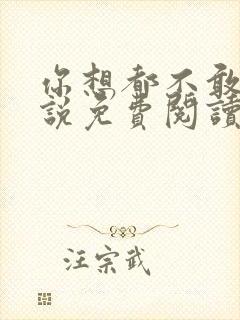 你想都不敢
說免費閱讀
汪宗武